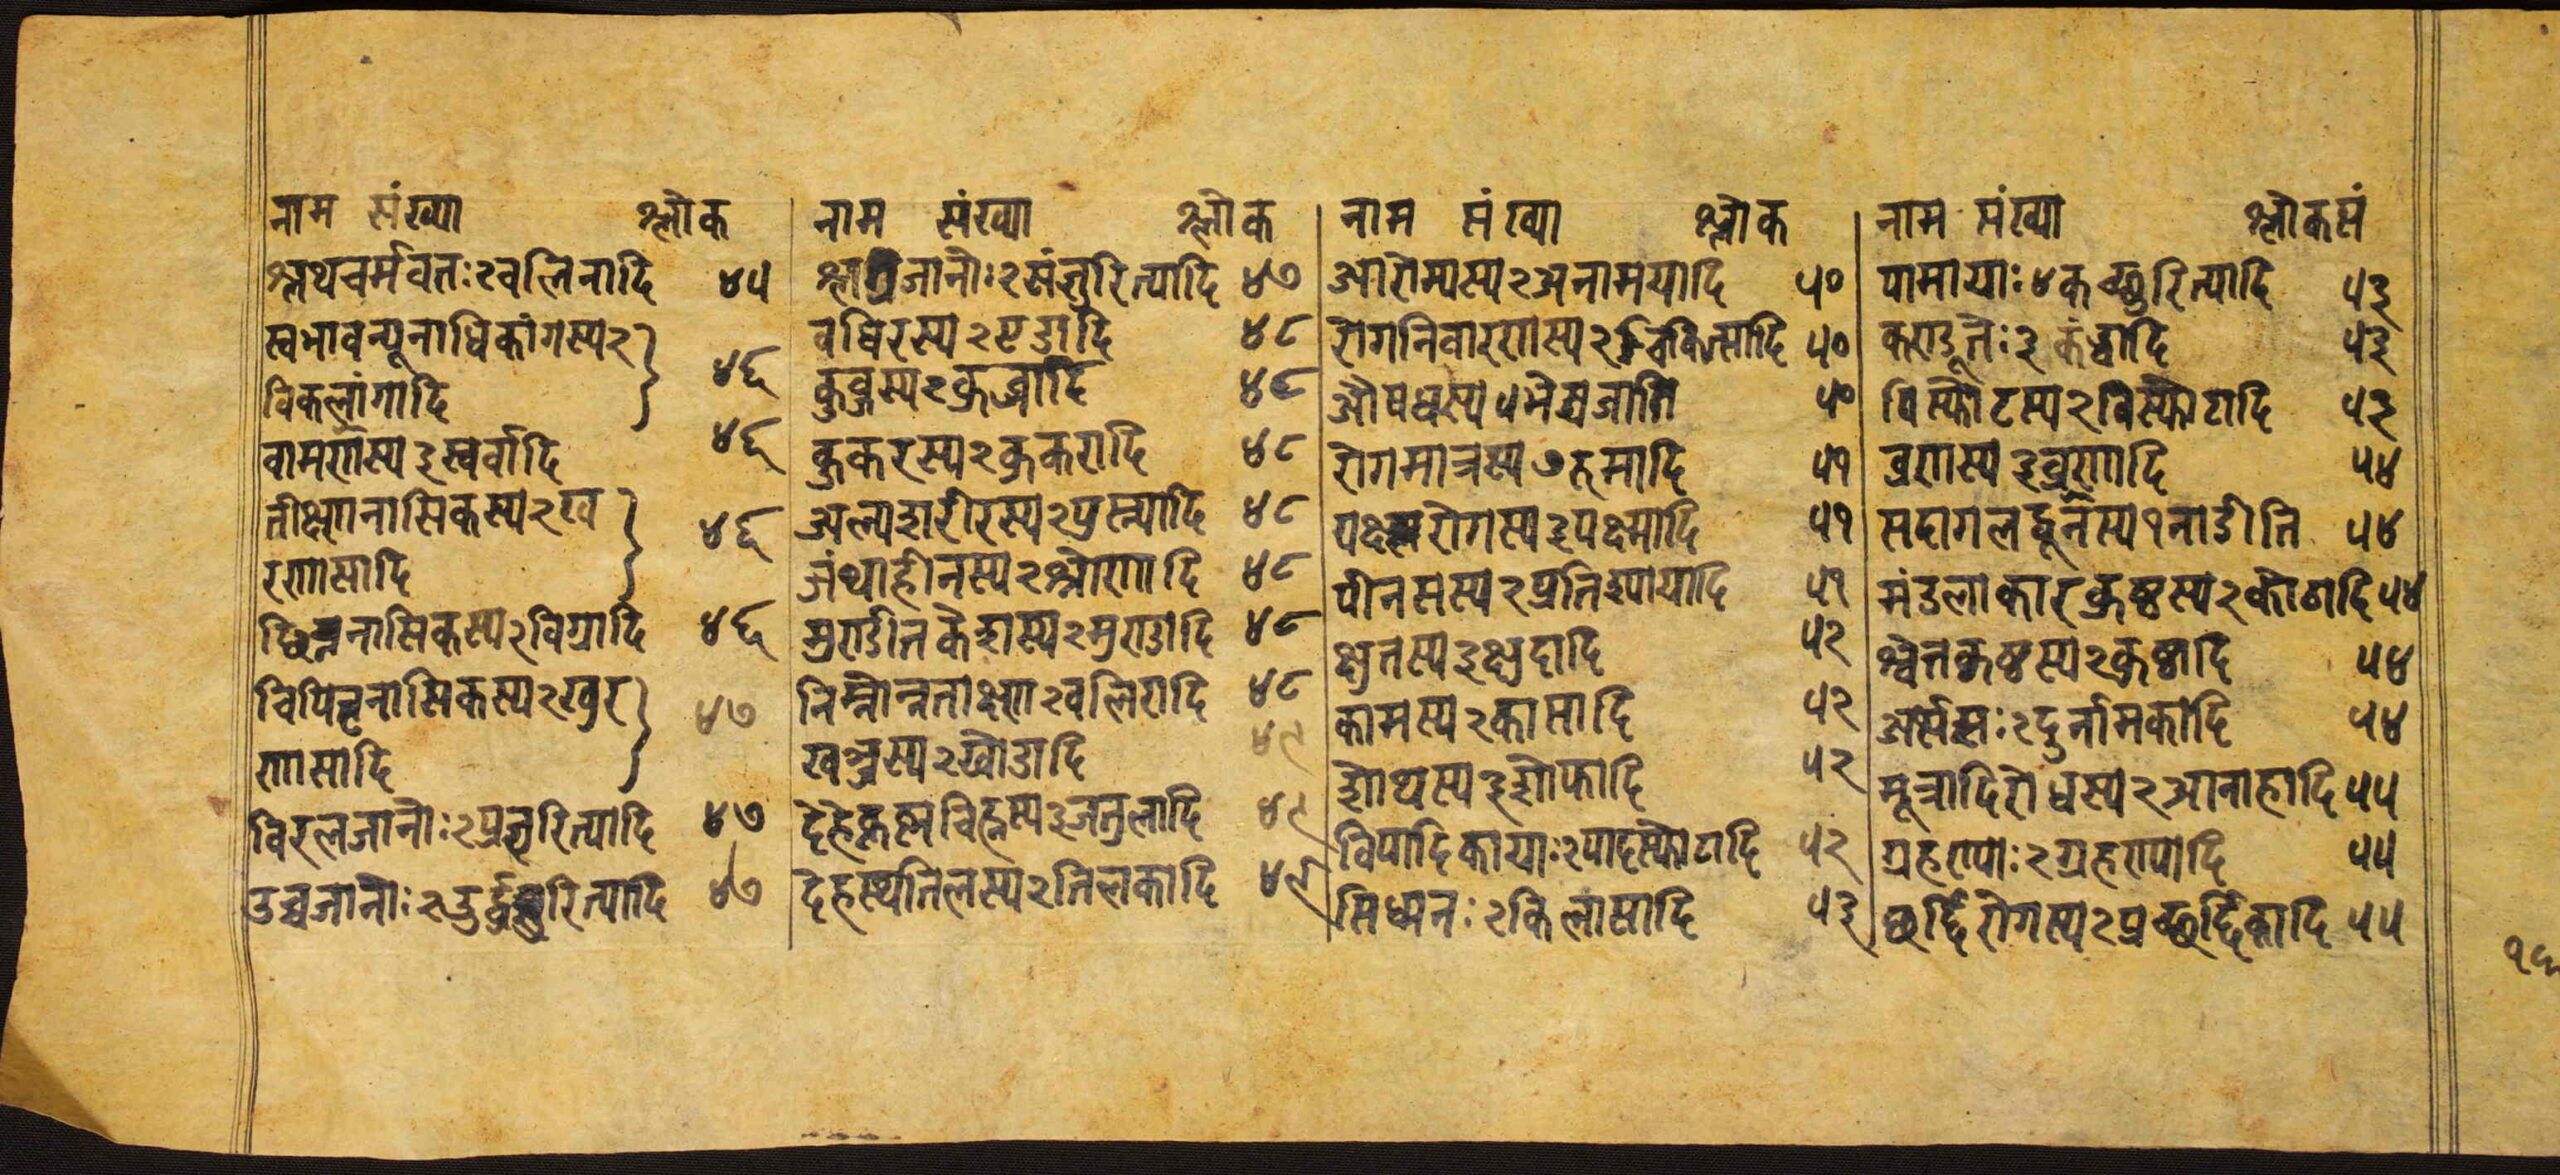 नाम संख्या श्लोक
श्लथचर्मवतः२वलिनादि ४५
स्वभावन्यूनाधिकांगस्य२
विकलांगादि ४६
वामणस्य३खर्वादि ४६
तीक्ष्णनासिकस्य२ख
रणसादि ४६
छिन्ननासिकस्य२विग्रादि ४६
चिपिटनासिकस्य२खुर
णसादि ४७
विरलजानोः२प्रज्ञुरित्यादि ४७
उच्चजानोः२ ४७
नाम संख्या श्लोक
जानोः२संज्ञुरित्यादि ४७
वधिरस्य२एडादि ४८
कुब्जस्य२कुब्जादि ४८
कुकरस्य२कुकरादि ४८
अल्पशरीरस्य२प्रस्न्यादि ४८
जंघाहीनस्य२श्रोणादि ४८
मुण्डीतकेशस्य२मुण्डादि ४८
निम्नोन्नताक्षण२वलिरादि ४८
खञ्जस्य२खोडादि ४९
देहेकृष्णचिह्नस्य३जतुलादि ४९
देहस्थतिलस्य२तिलकादि ४९
नाम संख्या श्लोक
आरोग्यस्य२अनामयादि ५०
रोगनिवारणस्य२चिकित्सादि ५०
औषधस्य५भेषजाति ५०
रोगमात्रस्य७रुमादि ५१
यक्ष्मरोगस्य३यक्ष्मादि ५१
पीनसस्य२प्रतिश्यायादि ५१
क्षुतस्य३क्षुदादि ५२
कामस्य२कासादि ५२
शोथस्य३शोफादि ५२
विपादिकायाः२पादस्फोटादि ५२
सिध्मनः२किलासादि ५३
नाम संख्या श्लोकसं
पामायाः४कच्छुरित्यादि ५३
कण्डूतेः३कंड्वादि ५३
विस्फोटस्य२विस्फोटादि ५३
व्रणस्य३व्रणादि ५४
सदागलद्व्रनस्य१नाडीति ५४
मंडलाकारकुष्ठस्य२कोठादि ५४
श्वेतकुष्ठस्य२कुष्ठादि ५४
अर्सस्सः२दुर्नामकादि ५४
मूत्रादिरोधस्य२आनाहादि ५५
ग्रहण्योः२ग्रहण्योदि ५५
छर्द्दिरोगस्य२प्रच्छर्द्दिकादि ५५